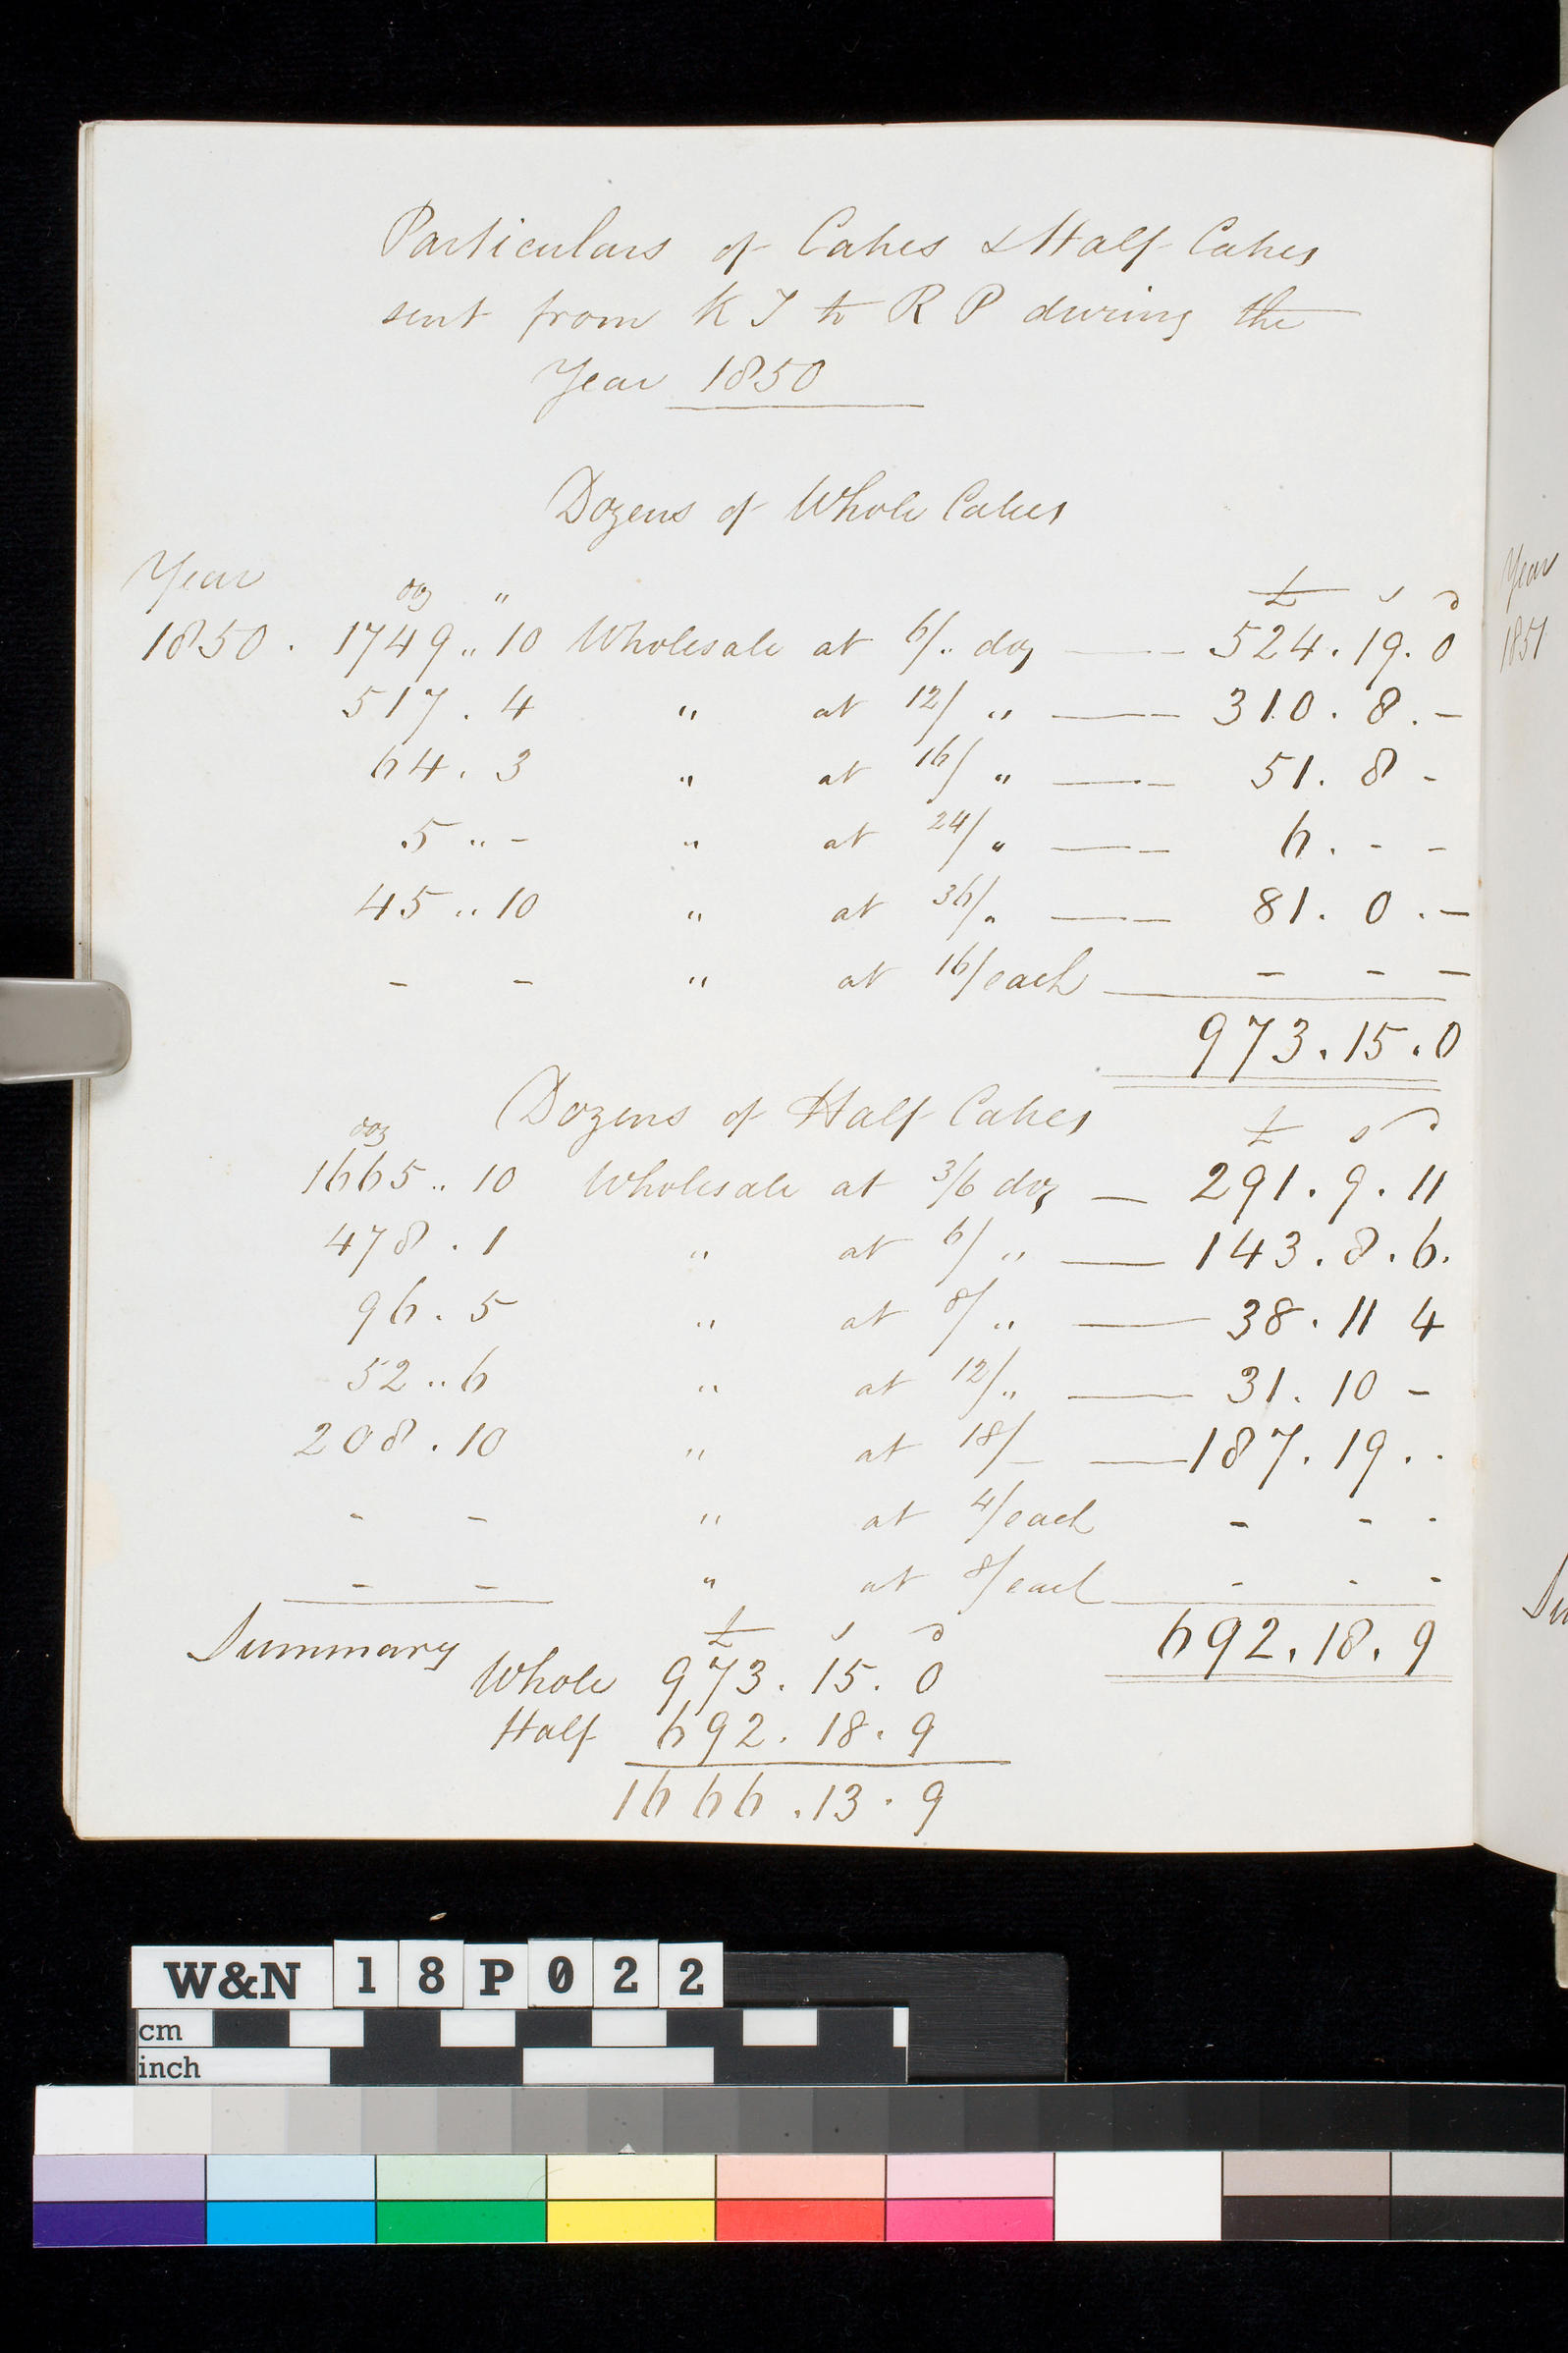 Particulars of Cakes & Half Cakes
sent from K T to R P during the
Year 1850
Dozens of Whole Cakes
Year doz " £ s d
1850 . 1749 .. 10 Wholesale at 6/. doz — 524 . 19 . 0
517 . 4 " at 12/ " — 310 . 8 . -
64 . 3 " at 16/ " — 51 . 8 -
5 .. - " at 24/ " — 6 . - -
45 .. 10 " at 36/ " — 81 . 0 . -
- - " at 16/ each - - -
973 . 15 . 0
Dozens of Half Cakes £ s d
doz
1665 .. 10 Wholesale at 3/6 doz — 291 . 9 . 11
478 . 1 " at 6/ " — 143 . 8 . 6 .
96 . 5 " at 8/ " — 38 . 11 4
52 .. 6 " at 12/ " — 31 . 10 -
208 . 10 " at 18/- — 187 . 19 . .
- - " at 4/ each - - -
- - " at 8/ each - - -
692 . 18 . 9
Summary £ s d
Whole 973 . 15 . 0
Half 692 . 18 . 9
1666 . 13 . 9
Year
1851
Su
W&N 18P022
cm
inch